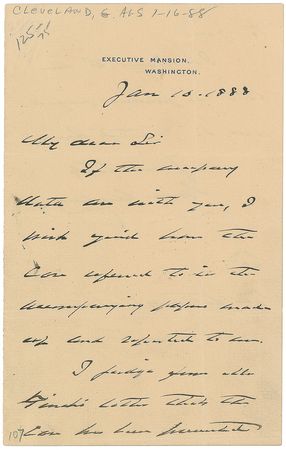 CLEVELAND, G. ALS 1-16-88
125-75
EXECUTIVE MANSION.
WASHINGTON.
Jan 16. 1888
My dear Sir
If the necessary
data are with you, I
wish you'd have the
Case referred to in the
accompanying papers made
up and reported to me.
I judge from
letter that the
Case has been presented
107